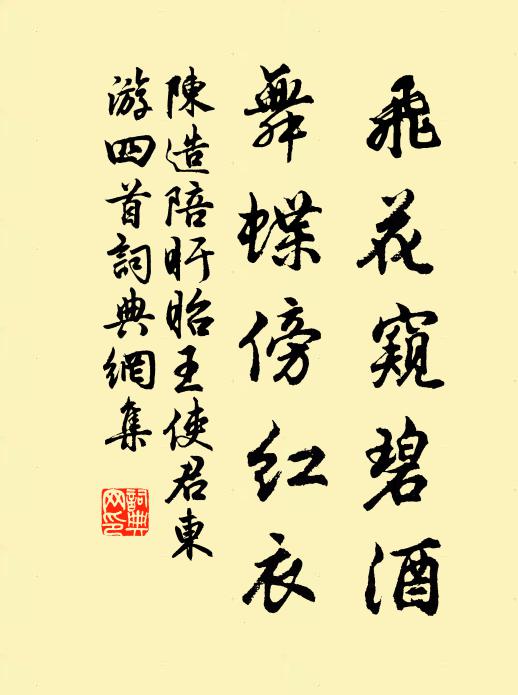 飛花窺碧酒
舞蝶傍紅衣
陳造陪盱眙王使君東
游四首詞典網集
詞典
网印